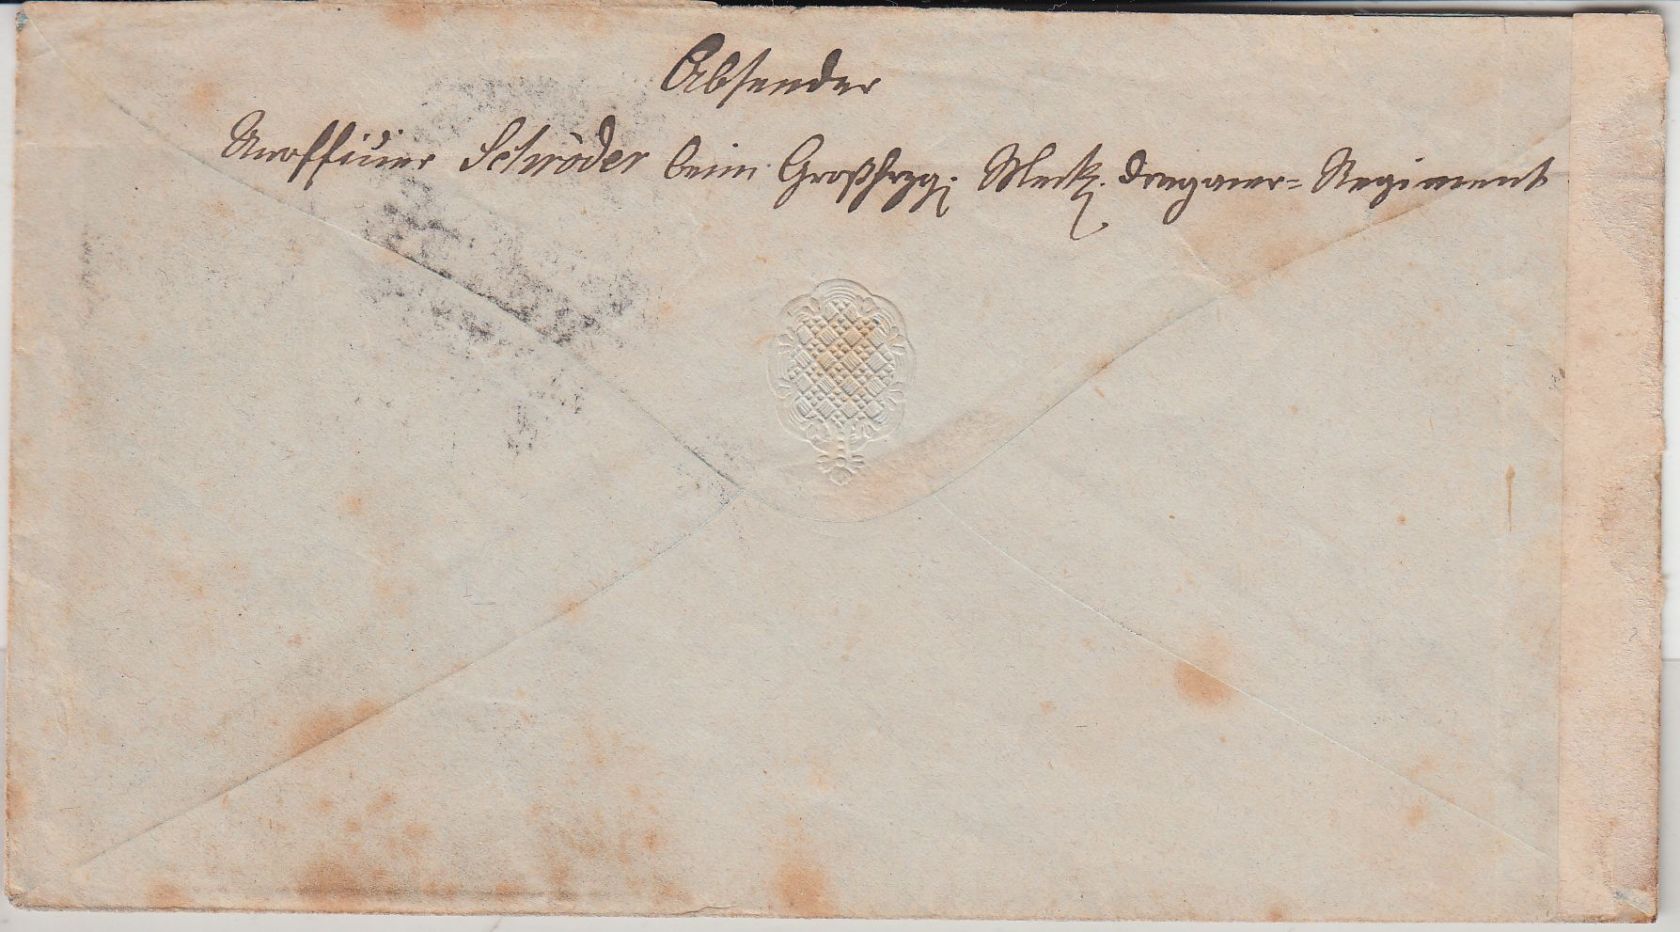 Absender
Unoffizier Schröder beim Großhrzg. Meckl. Dragoner-Regiment